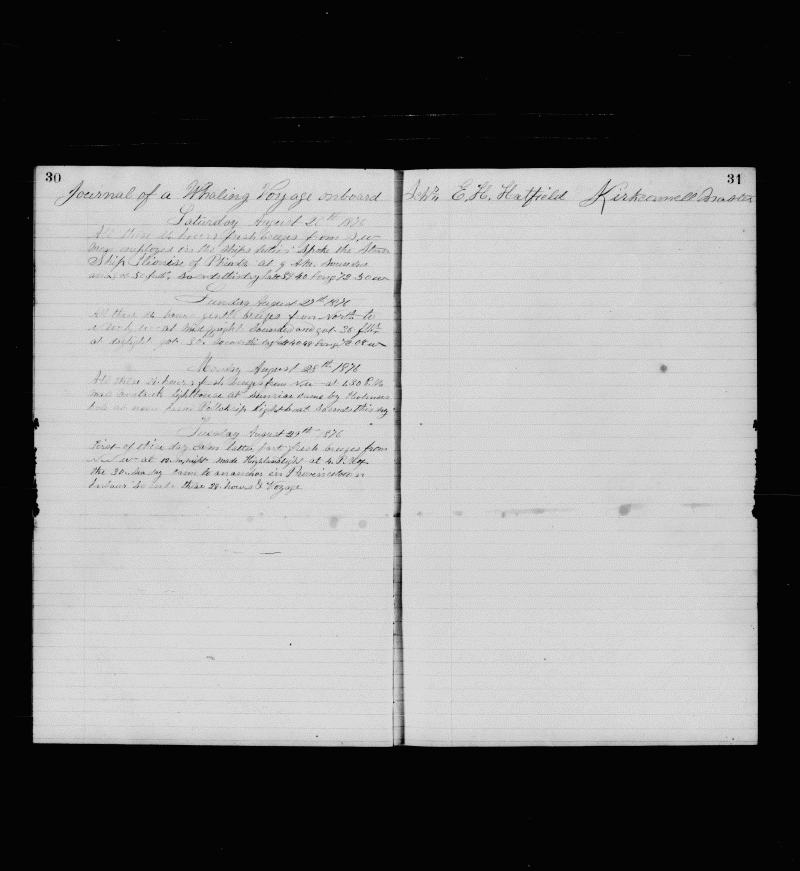 30
Journal of a Whaling Voyage onboard
Saturday August 26th 1876
All these 24 hours fresh breezes from S.W.
crew employed in the ships duties Spoke the Steam
Ship of at 9 A.M. Sounded
and got 50 fath, So ends this day Lat 40 Long 72-30 W
Sunday August 27th 1876
All these 24 hours gentle breezes from North to
at mid night Sounded and got 38 fth
at daylight got 30. So ends this day Lat 40-48 Long 70-08 W
Monday August 28th 1876
All these 24 hours fresh breezes from at 1.30 P.M.
made lighthouse at Sunrise came by
at noon from Pollock rip light boat So ends this day
Tuesday August 29th 1876
First of this day calm latter part fresh breezes from
at 12 M.night made Highland light at 4 P.M. of
the 30. day came to an anchor in Provincetown
harbour So ends these 24 hours & Voyage
31
Schr E.H. Hatfield Kirkconnell Master